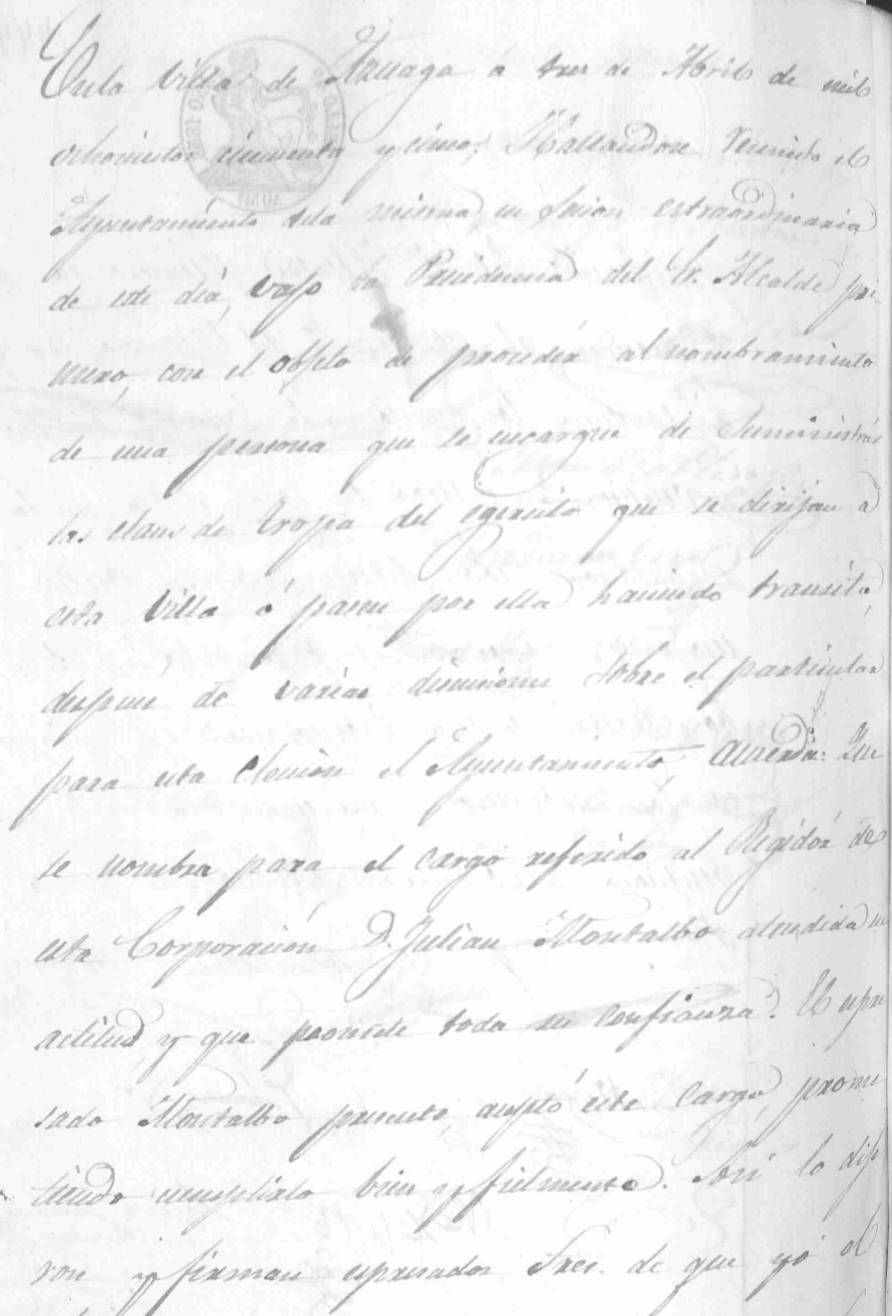 En la Villa de Azuaga a tres de Abril de mil
ochocientos cincuenta y cinco; Hallandose reunido el
Ayuntamiento dela misma, en Sesion estraordinaria
de este dia, vajo la Presidencia del Sr. Alcalde pri-
mero, con el objeto de procedér al nombramiento
de una persona que se encargue de Suministrár
las clases de tropa del egercito que se dirijan á
esta Villa ó pasen por ella haciendo transito,
despues de varias discusiones sobre el particular
para esta elección el Ayuntamiento, Acuerda: Que
se nombra para el cargo referido al Regidór de
esta Corporación D. Julian Montalbo atendida su
actitud, y que posee de toda su confianza. El espre
sado Montalbo presente, aceptó este Cargo, prome
tiendo cumplirlo bien y fielmente. Asi lo dije
ron y firman espresados Sres. de que yó el